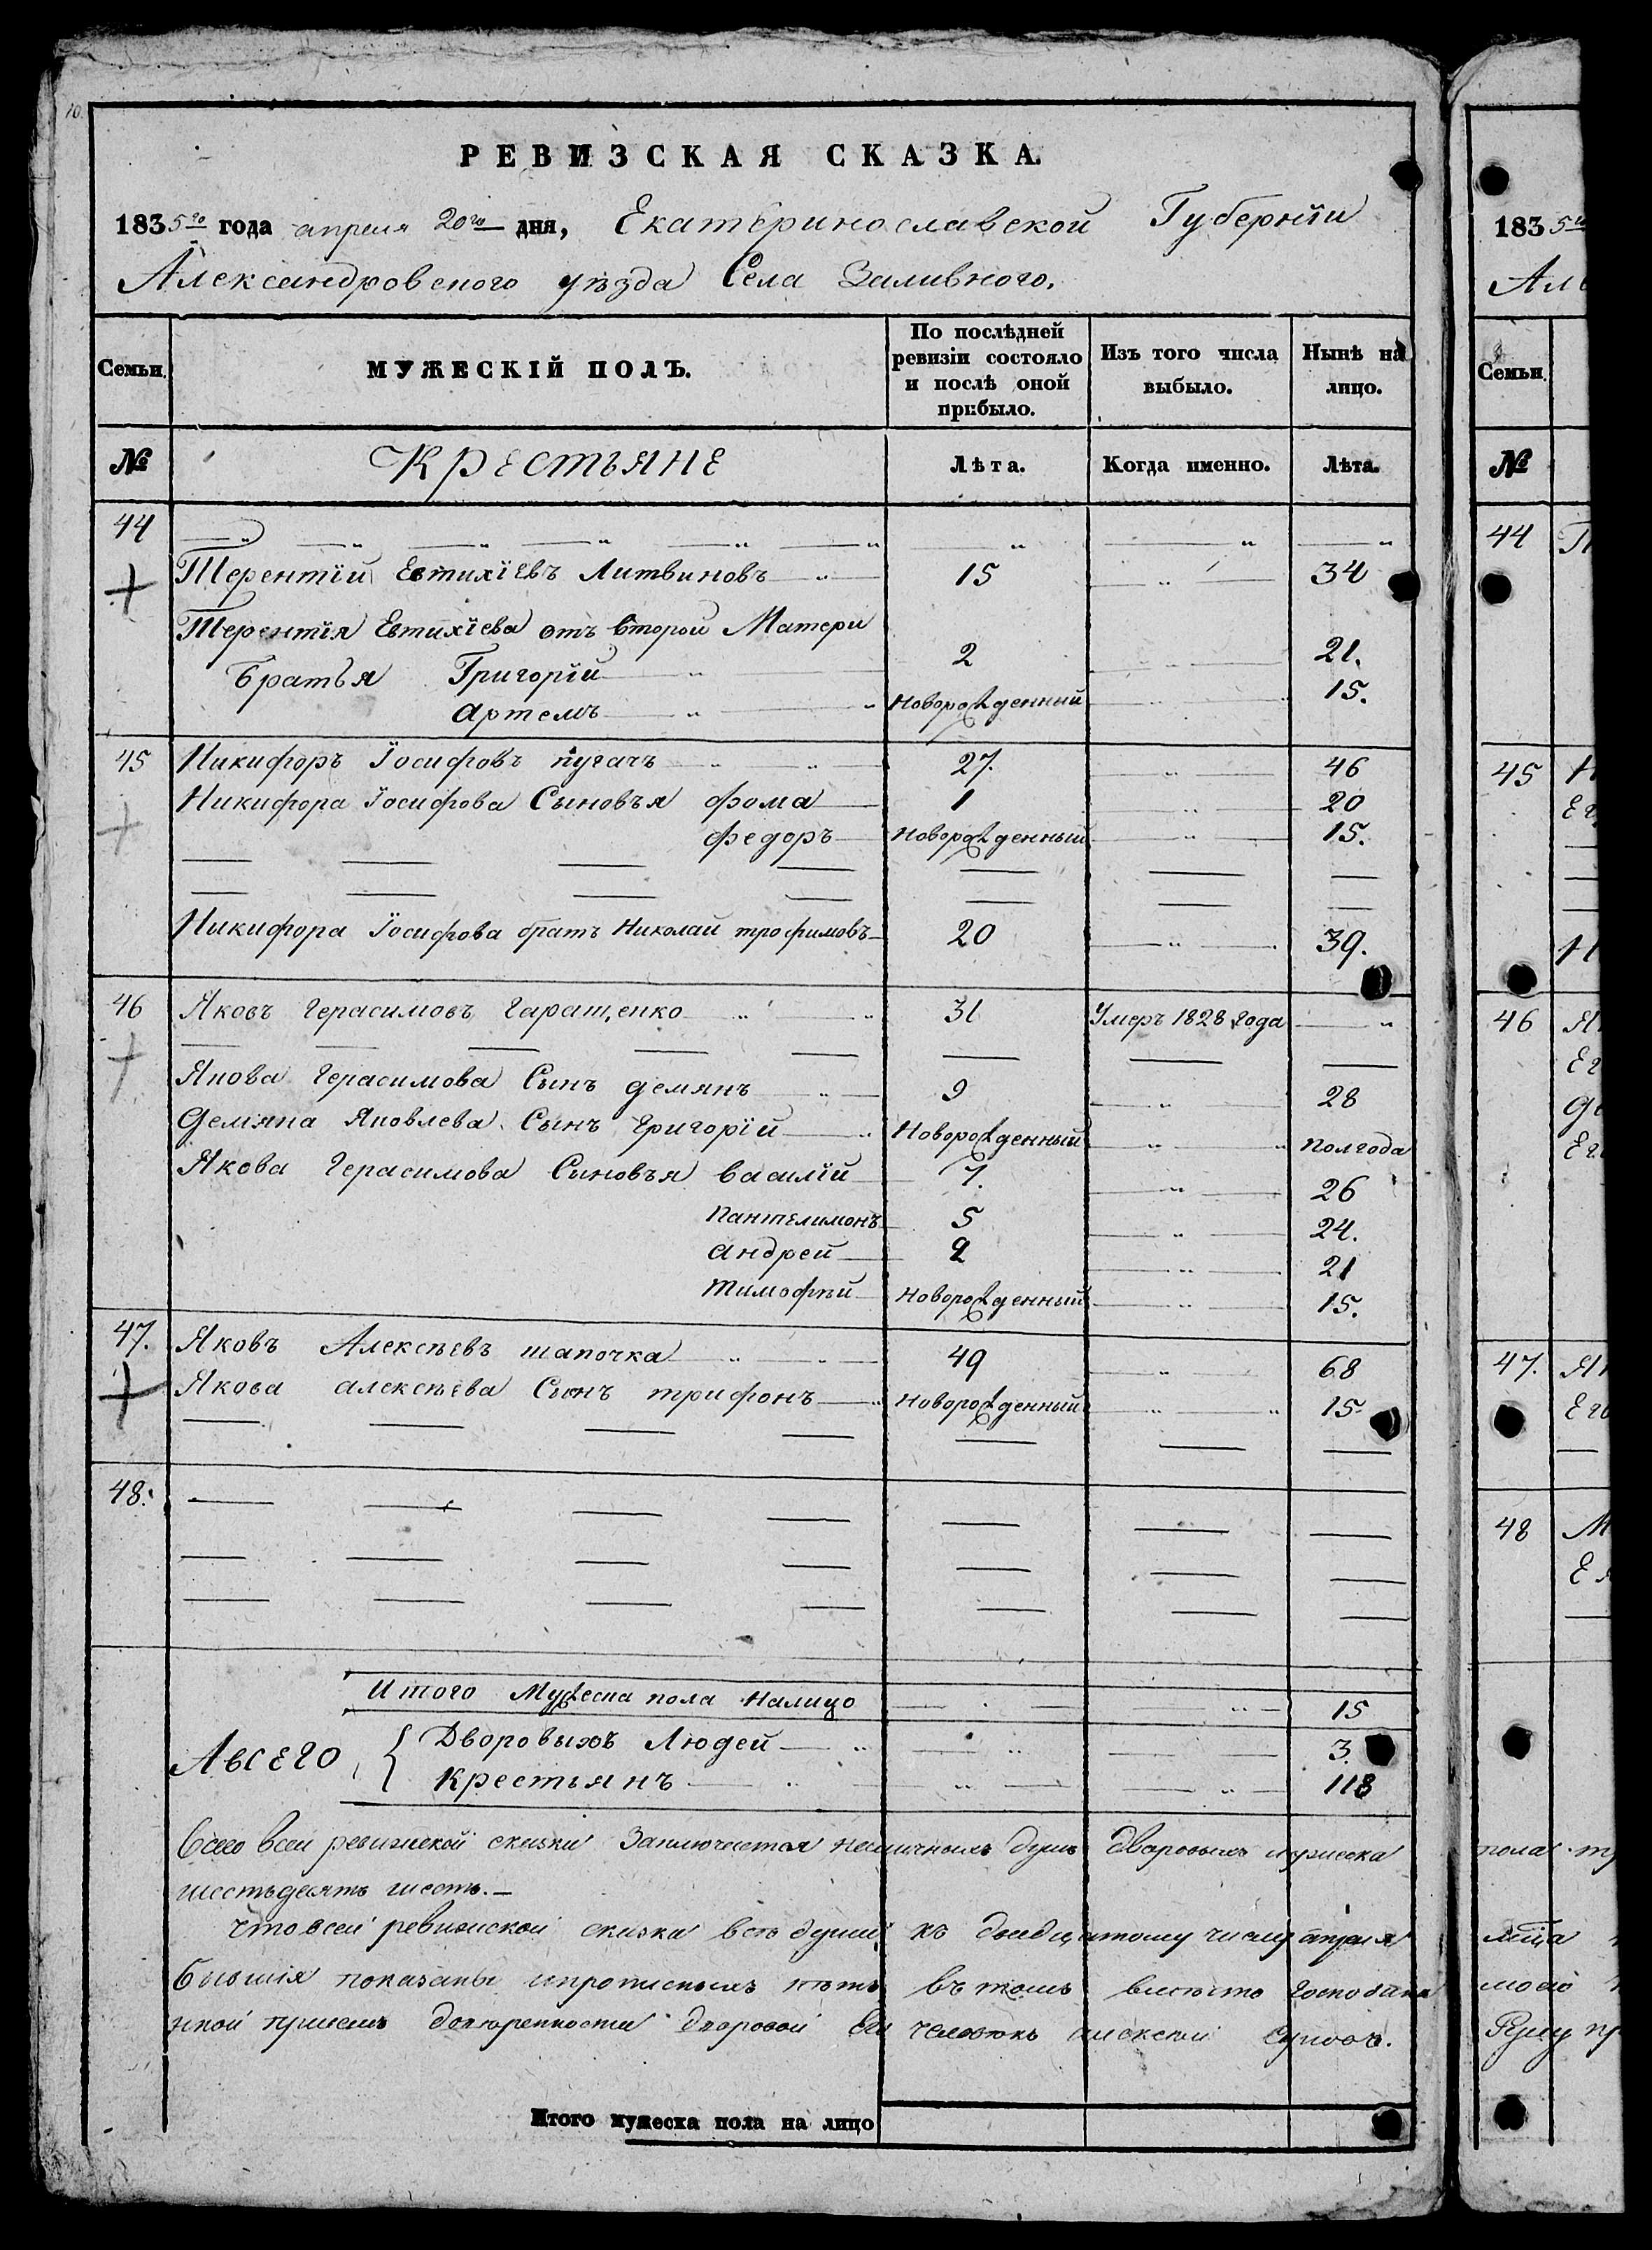 10.
РЕВИЗСКАЯ СКАЗКА.
1835го года апреля 20го дня, Екатеринославской Губернїи
Александровского уѣзда Села Заливного.
Семьи.
МУЖЕСКІЙ ПОЛЪ.
По послѣдней ревизіи состояло и послѣ оной прибыло.
Изъ того числа выбыло.
Нынѣ на лицо.
№ Крестьяне Лѣта. Когда именно. Лѣта.
44
Терентїй Евтихїевъ Литвиновъ 15 34
Терентїя Евтихїева отъ второй Матери
Братья Григорїй 2 21.
Артемъ Новорожденный 15.
45 Никифоръ Їосифовъ пугачъ 27. 46
Никифора Їосифова Сыновья фома 1 20
федоръ Новорожденный 15.
Никифора Їосифова братъ Николай трофимовъ 20 39.
46 Яковъ Герасимовъ Гаращенко 31 Умеръ 1828 года
Якова Герасимова Сынъ демянъ 9 28
Демяна Яковлева Сынъ Григорїй Новорожденный полгода
Якова Герасимова Сыновья василїй 7. 26
Пантелимонъ 5 24.
андрей 2 21
Тимофѣй Новорожденный 15.
47. Яковъ Алексѣевъ шапочка 49 68
Якова алексѣева Сынъ трифонъ Новорожденный 15.
48.
Итого Мужеска пола налицо 15
Авсего { Дворовыхъ Людей 3
Крестьянъ 118
Всего всей ревижской сказки Заключается наличныхъ душъ Дворовыхъ мужеска
шестьдесятъ шесть.
что всей ревижской сказка всѣ души, къ двадцатому числу апреля
бывшія показаны ипрописныхъ нѣтъ въ томъ вместо
дворовой человѣкъ алексей
Итого мужеска пола на лицо
1835
Але
Семьи.
№
44
45
Ег
46
Ег
47.
Его
48
пола
мсца
моего